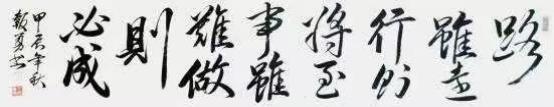 路
雖遠
行則
將至
事雖
難做
則
必成
甲辰年秋